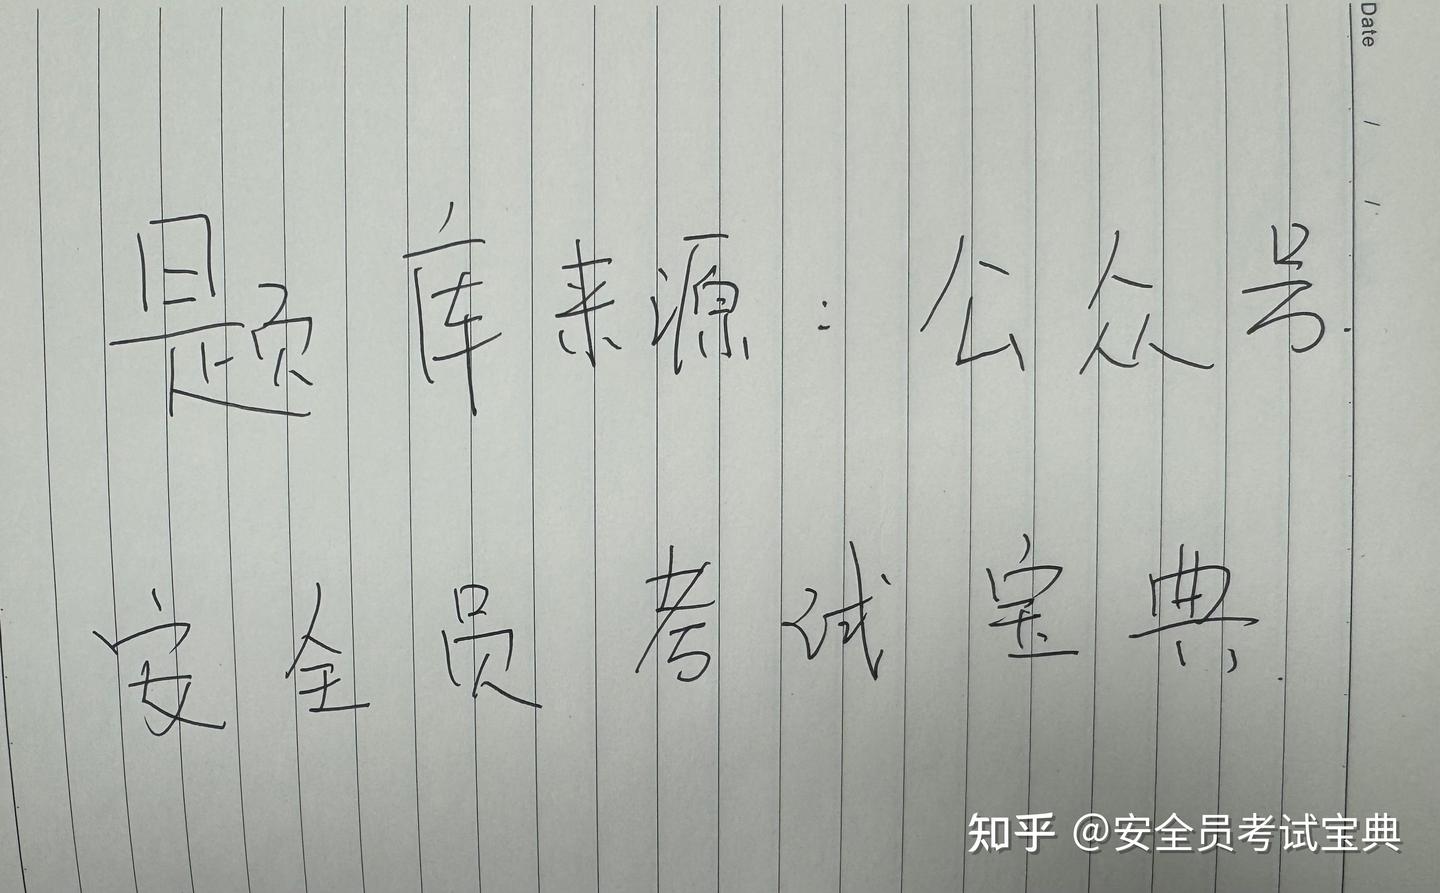 Date / /
题库来源:公众号
安全员考试宝典
知乎 @安全员考试宝典